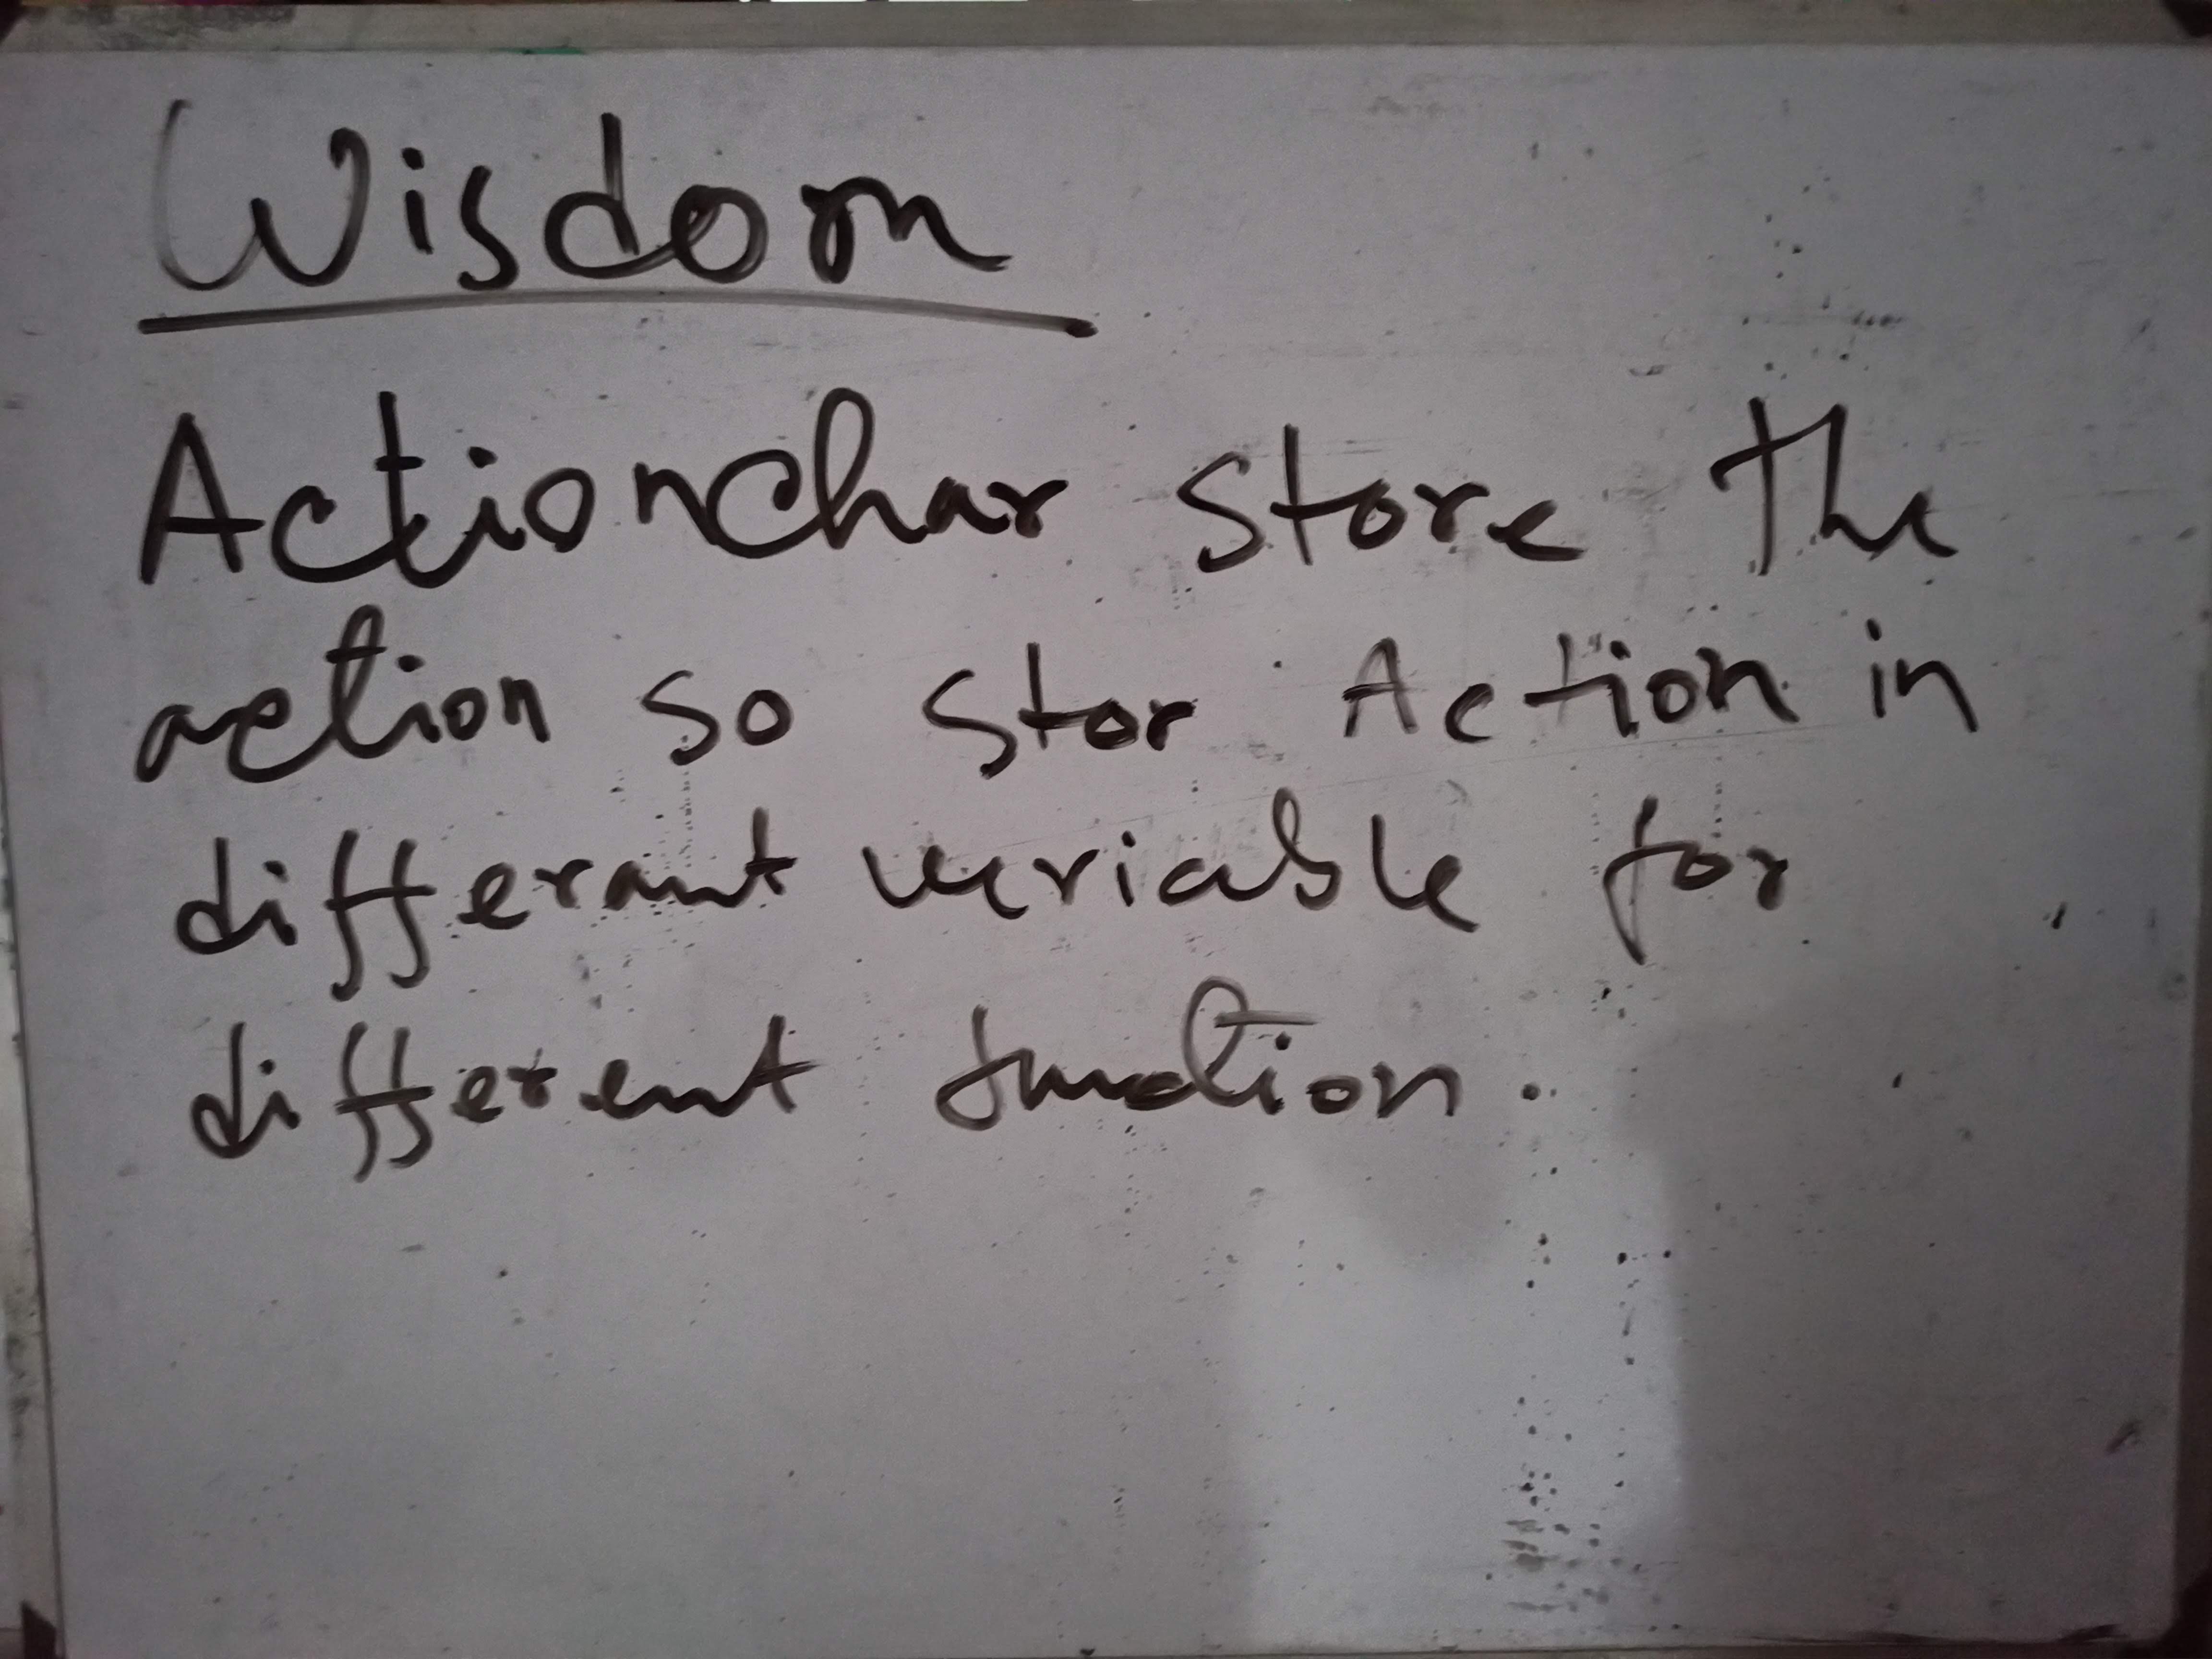 Wisdom
Actionchar store the
action so stor Action in
differant veriable for
different function.